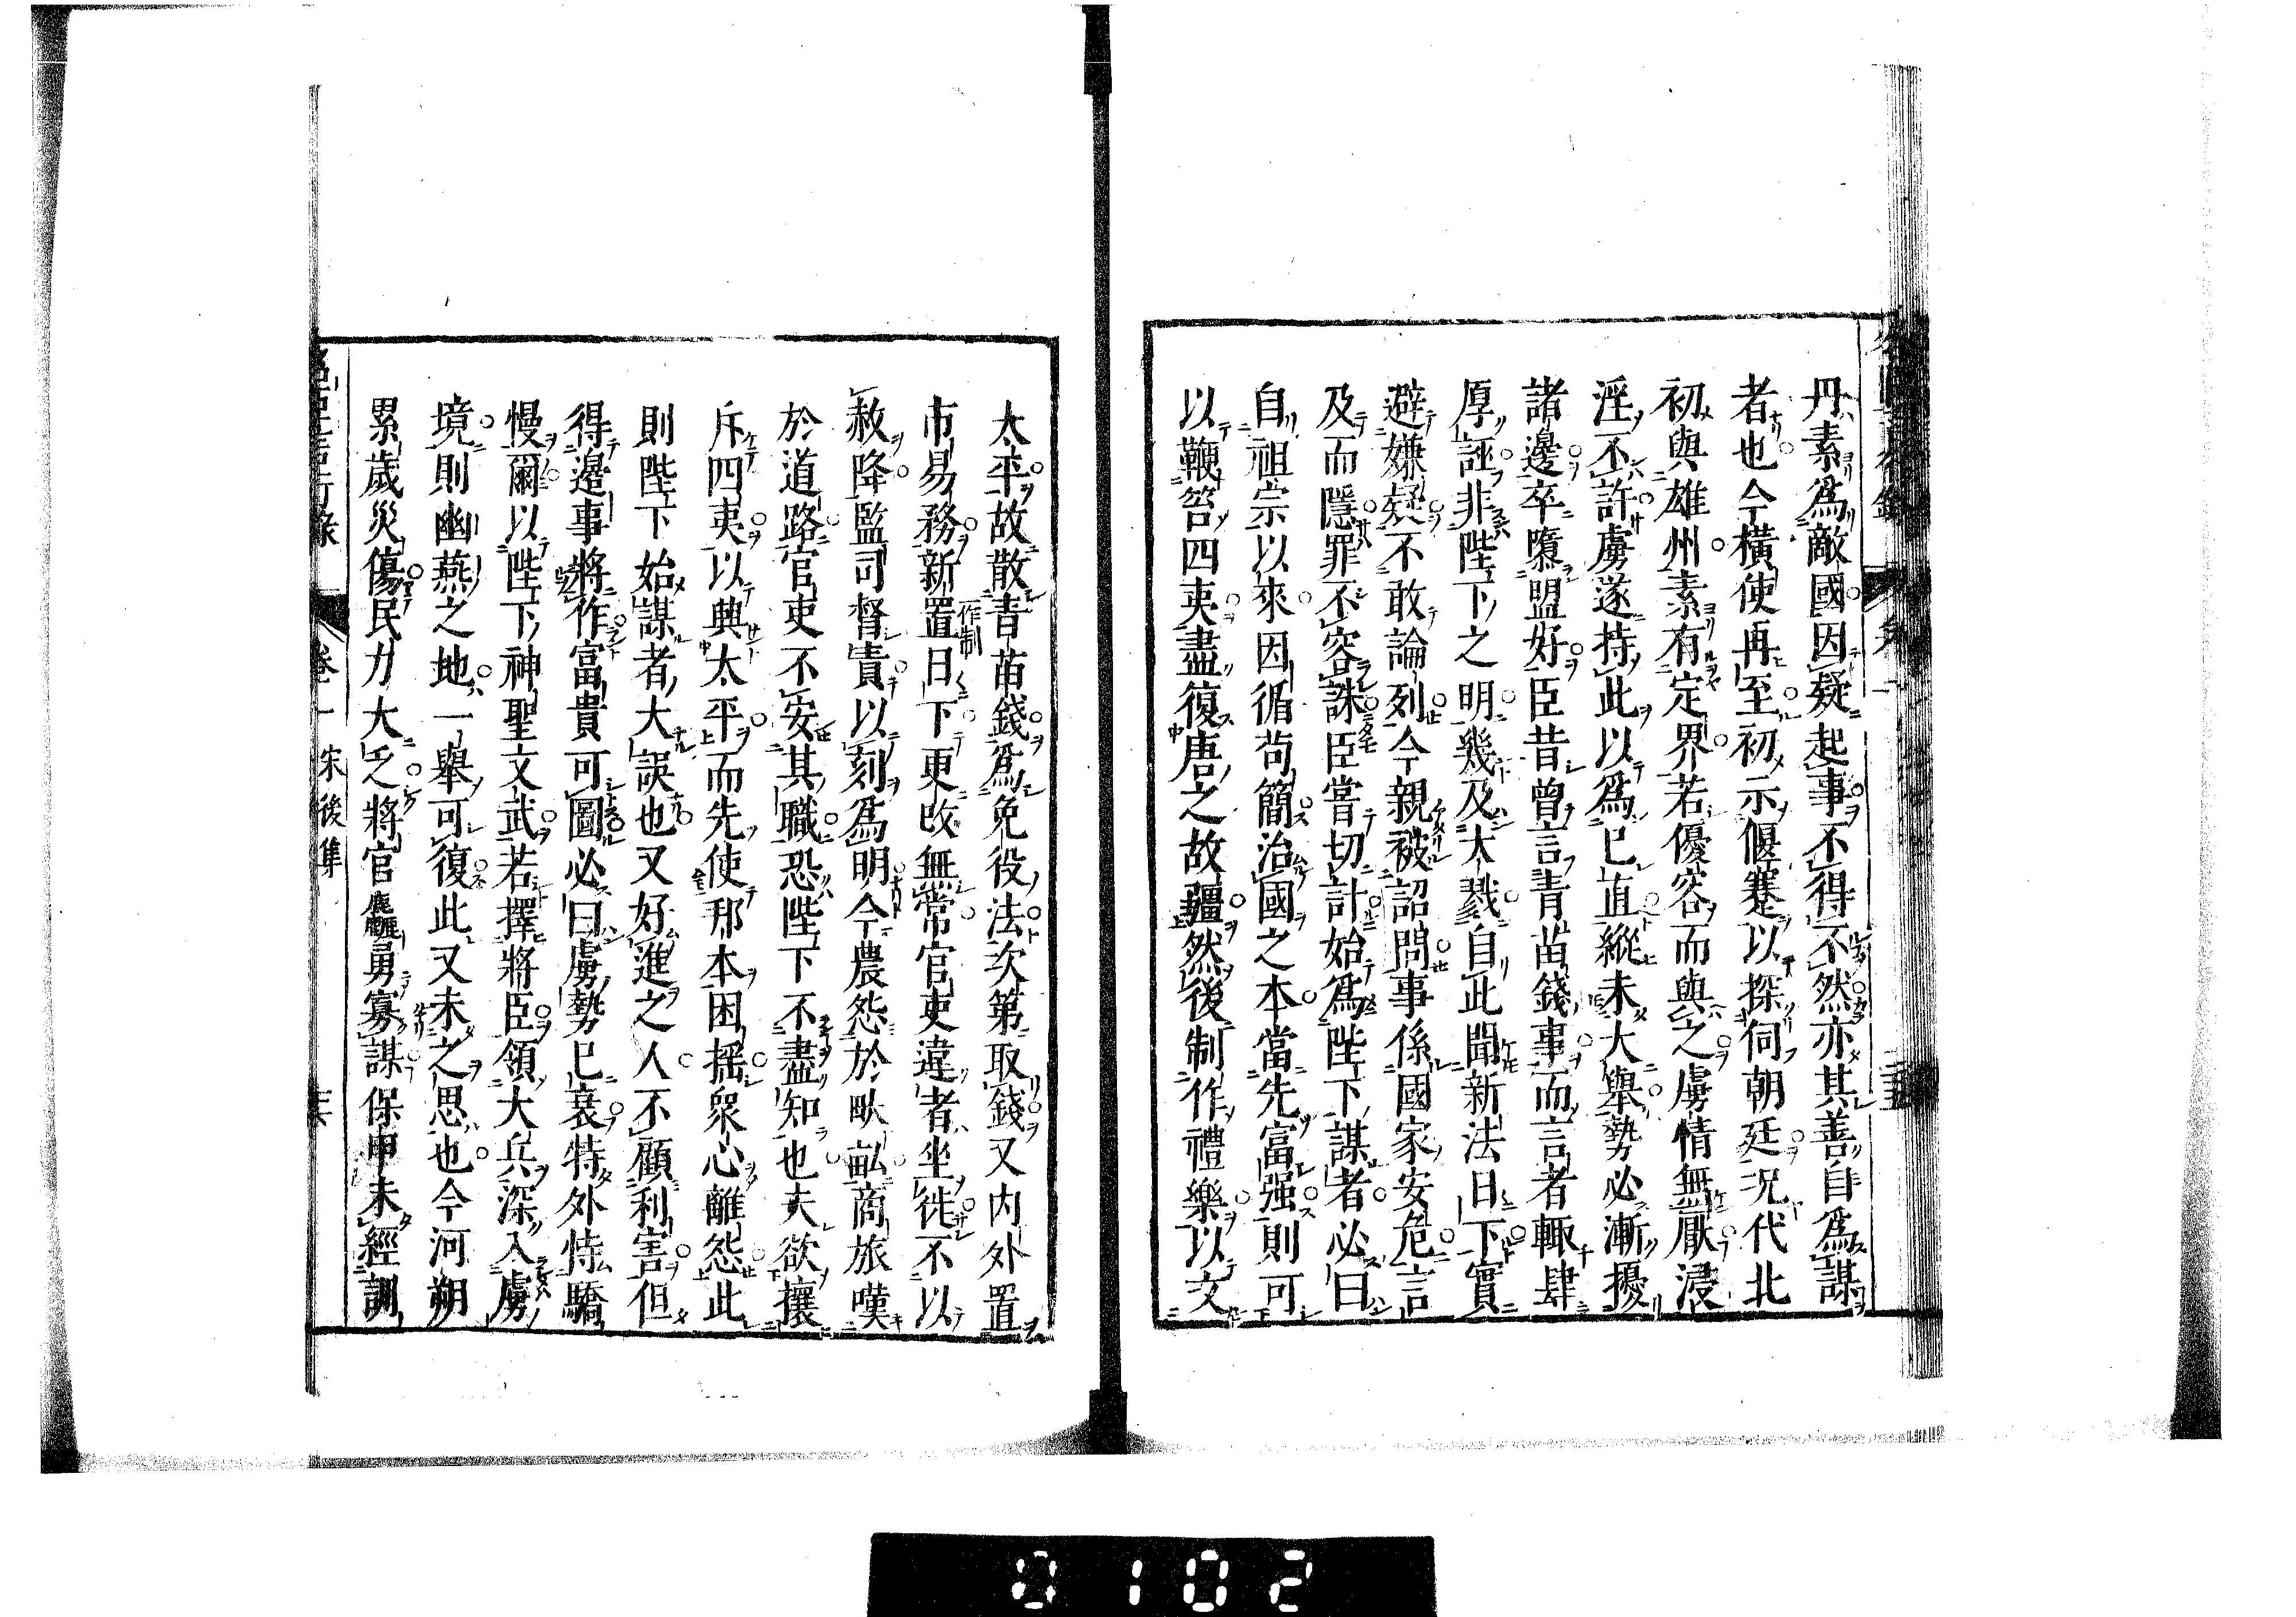 丹素爲敵國因疑起事不得不然亦其善自爲謀
者也今橫使再至初示偃蹇以探伺朝廷况代北
初與雄州素有定界若優容而與之虜情無厭浸
淫不許虜遂持此以爲已直縱未大舉勢必漸擾
諸邊卒隳盟好臣昔曾言青苗錢事而言者輒肆
厚誣非陛下之明幾及大戮自此聞新法日下實
避嫌疑不敢論列今親被詔問事係國家安危言
及而隱罪不容誅臣嘗切計始爲陛下謀者必曰
自祖宗以來因循茍簡治國之本當先富强則可
以鞭笞四夷盡復唐之故疆然後制作禮樂以文
太平故散青苗錢爲免役法次第取錢又内外置
市易務新置作制日下更改無常官吏違者坐徙不以
赦降監司督責以刻爲明今農怨於畎畝商旅嘆
於道路官吏不安其職恐陛下不盡知也夫欲攘
斥四夷以興太平而先使邦本困搖衆心離怨此
則陛下始謀者大誤也又好進之人不顧利害但
得邊事將作富貴可圖必曰虜勢已衰特外恃驕
慢爾以陛下神聖文武若擇將臣領大兵深入虜
境則幽燕之地一舉可復此又未之思也今河朔
累歲災傷民力大乏將官麄勇寡謀保甲未經訓
卷一
宋後集
0102